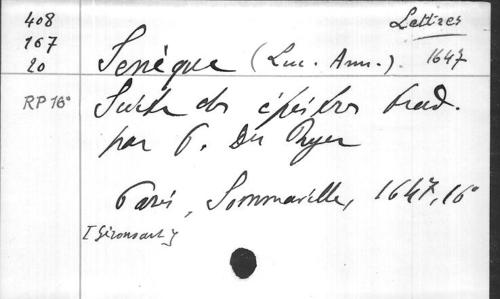 408
167
20
Lettres
Senèque (Luc. Ann.). 1647
RP 16°
Suite des épistres trad.
par P. Du Ryer
Paris, Sommaville, 1647, 16°